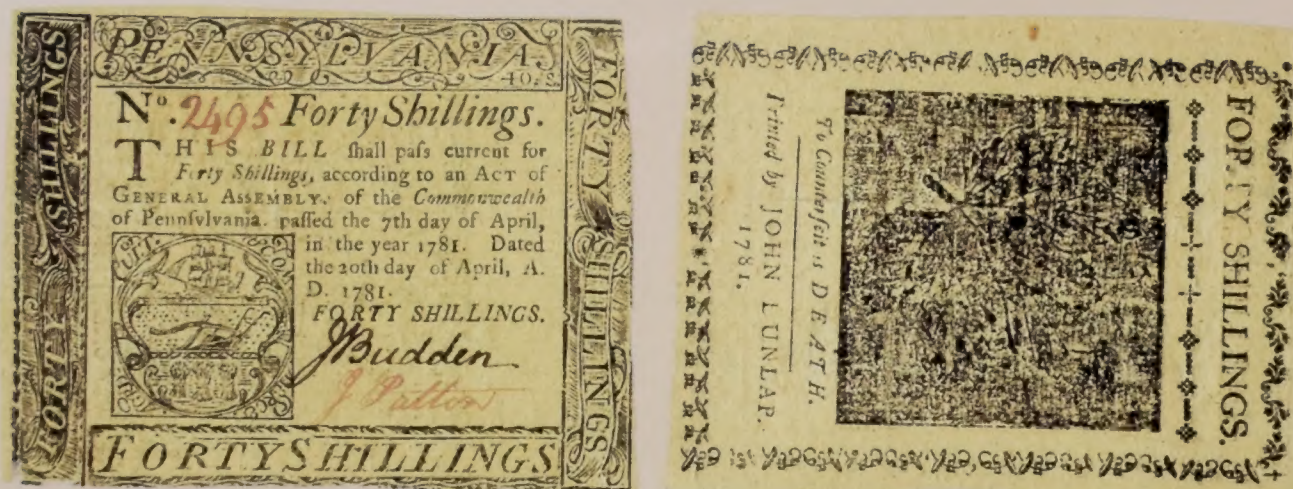 PENNSYLVANIA.
40. s.
FORTY SHILLINGS
No. 2495 Forty Shillings.
THIS BILL ſhall paſs current for
Forty Shillings, according to an ACT of
GENERAL ASSEMBLY, of the Commonwealth
of Pennſylvania. paſſed the 7th day of April,
in the year 1781. Dated
the 20th day of April, A.
D. 1781.
FORTY SHILLINGS.
JBudden
J Patton
FORTY SHILLINGS
FORTY SHILLINGS
FORTY SHILLINGS.
To Counterfeit is DEATH.
Printed by JOHN DUNLAP.
1781.